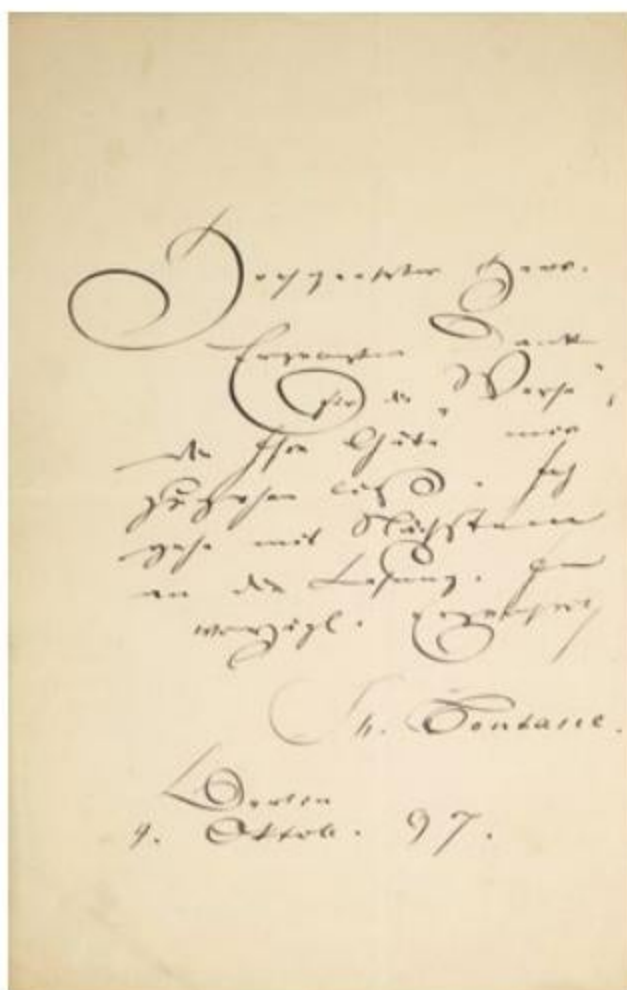 Hochgeehrter Herr.
Ergebensten Dank
für die „Verse“,
die Ihre Güte mir
zugehen ließ. Ich
gehe mit Nächstem
an die Lesung. In
vorzügl. Ergebenheit
Th. Fontane.
Berlin
9. Oktob. 97.